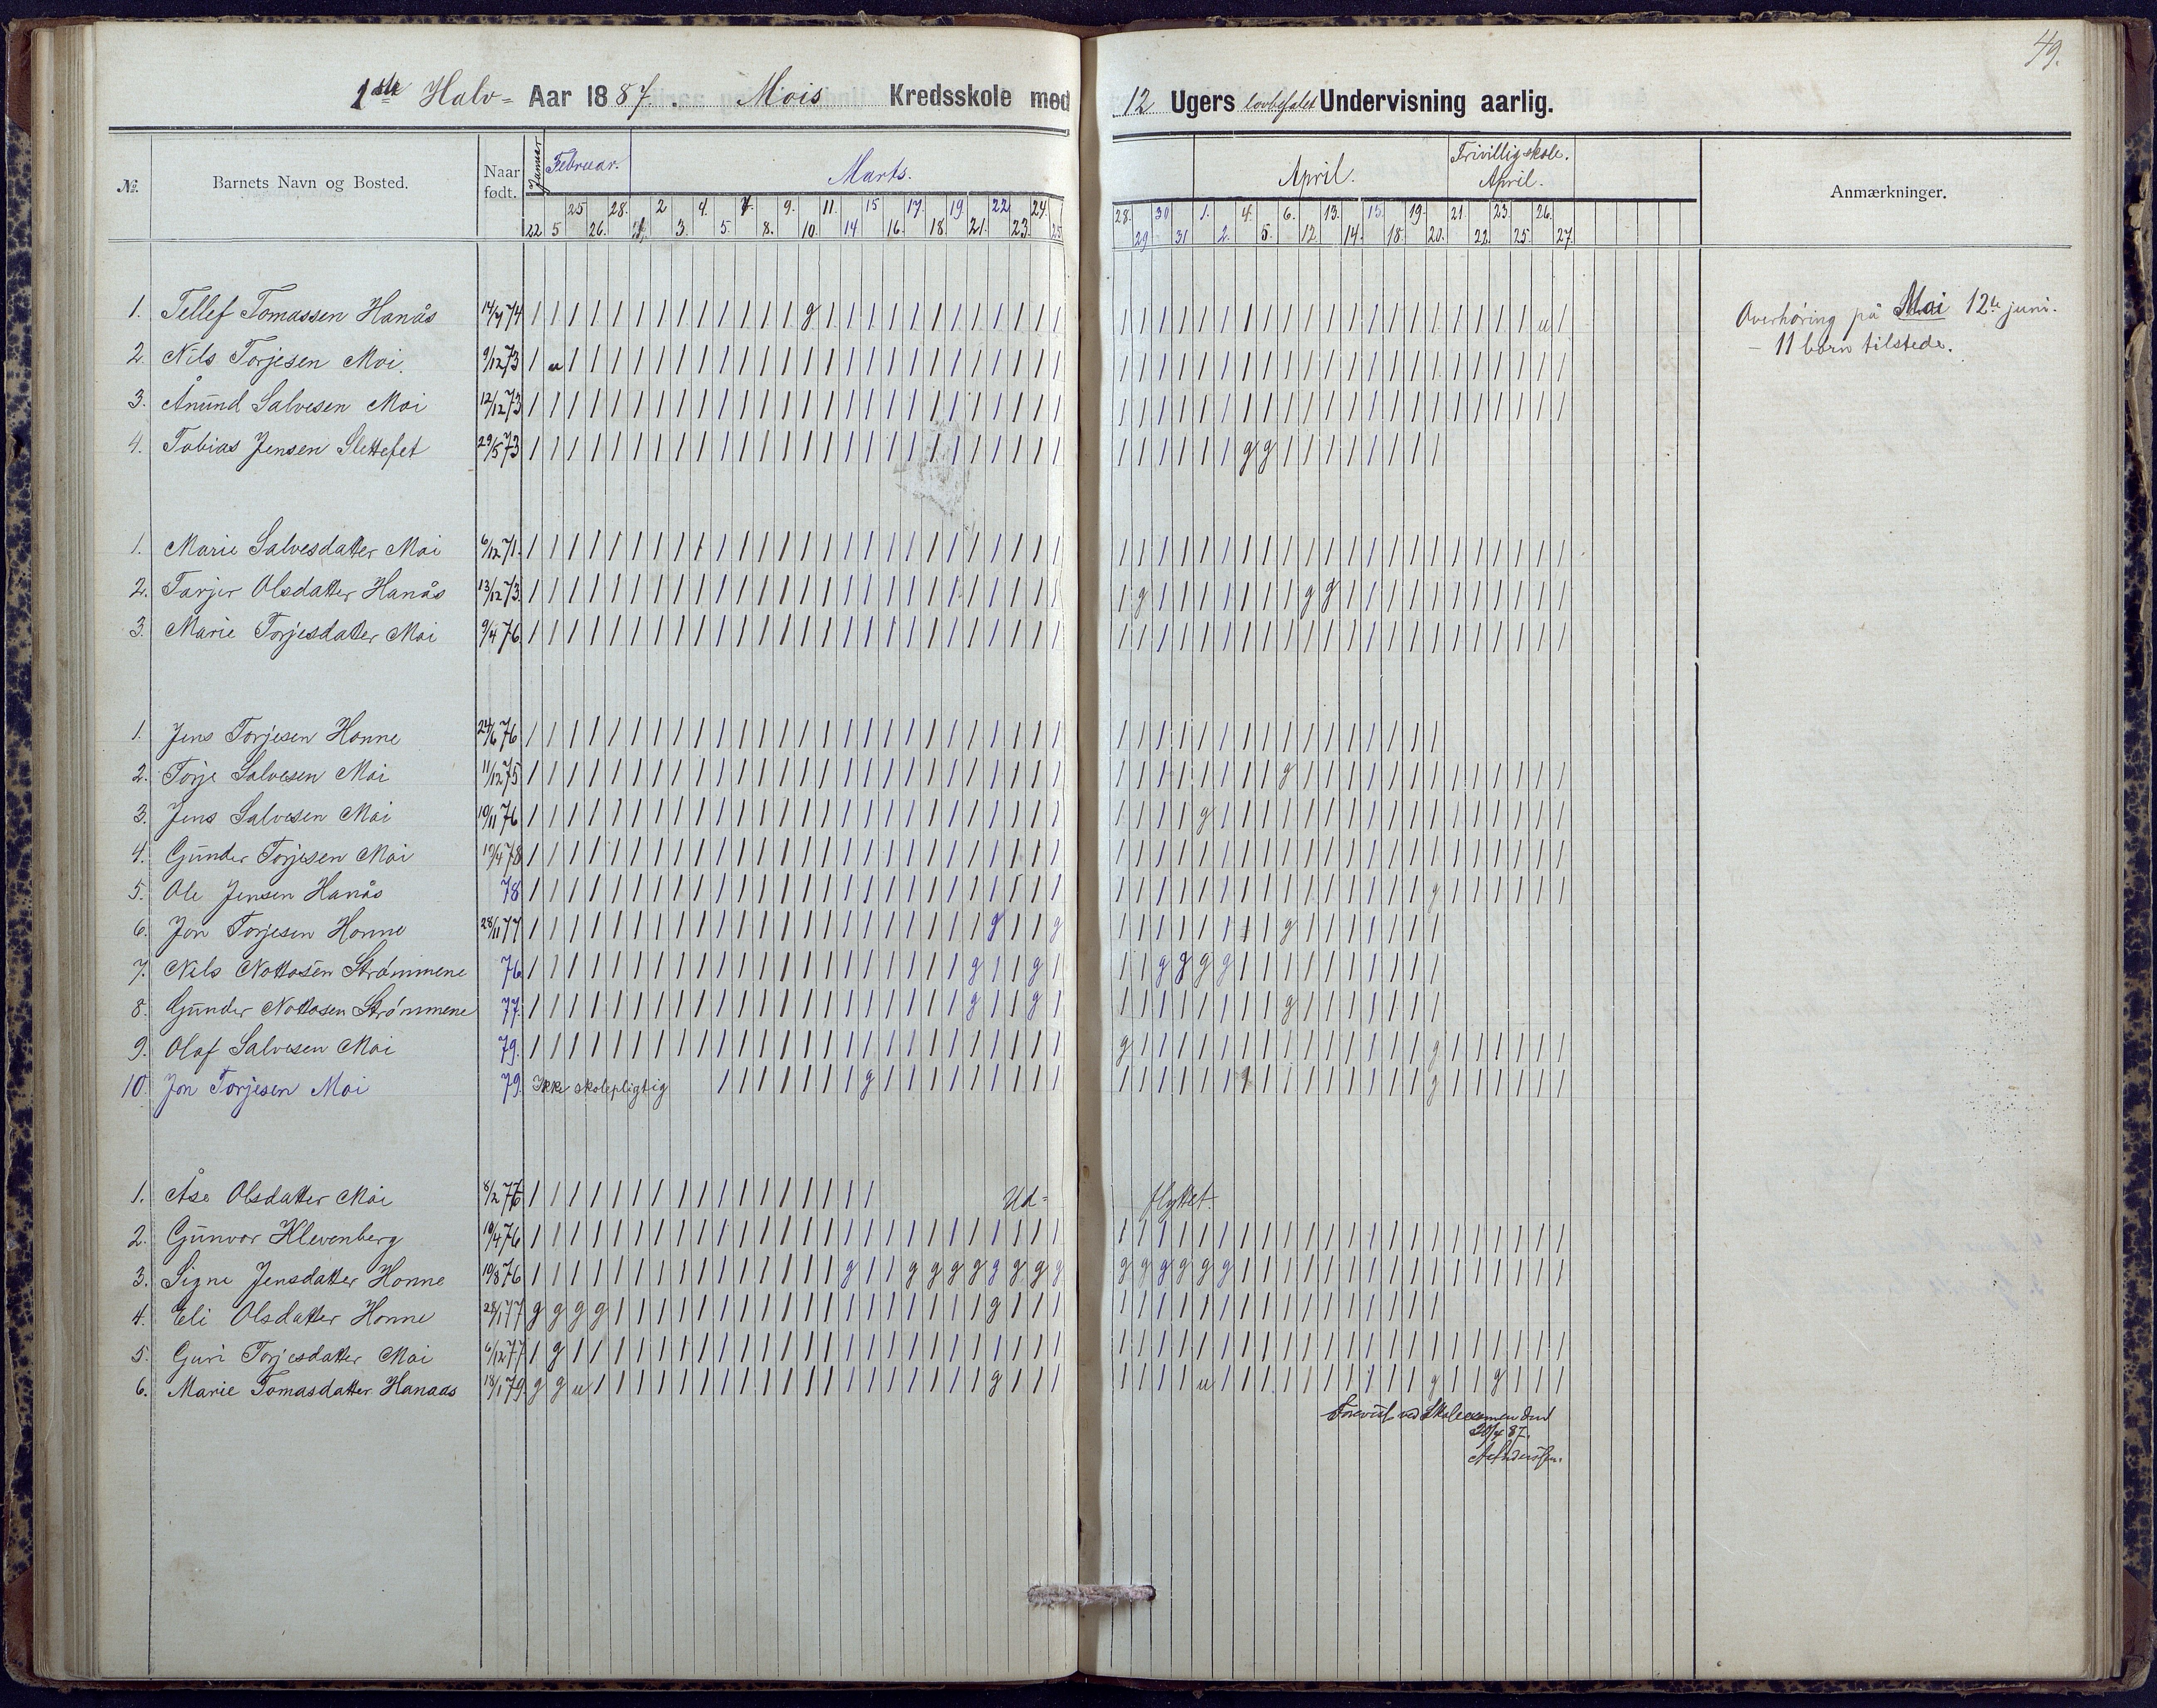 49.
1ste Halv- Aar 1887. Mois Kredsskole med 12 Ugers lovbefalet Undervisning aarlig.
No. Barnets Navn og Bosted. Naar født. Januar Februar. Marts. April. Frivillig skole. April. Anmærkninger.
25 28. 2 4. 7. 9. 11. 15 17. 19. 22 24. 28. 30 1. 4. 6. 13. 15. 19. 21. 23. 26.
22 5 26. 1. 3. 5. 8. 10. 14 16. 18 21. 23. 25 29 31 2. 5. 12. 14. 18. 20. 22. 25. 27.
1. Tellef Tomassen Hanås 14/7 74 | | | | | | | | | | | | | g | | | | | | | | | | | | | | | | | | | | | | | | | | | | | | | u |
Overhøring på Moi 12te juni.
- 11 børn tilstede.
2. Nils Torjesen Moi. 9/12 73 | u | | | | | | | | | | | | | | | | | | | | | | | | | | | | | | | | | | | | | | | | | | | |
3. Ånund Salvesen Moi 12/12 73 | | | | | | | | | | | | | | | | | | | | | | | | | | | | | | | | | | | | | | | | | | | | | |
4. Tobias Jensen Slettefet 29/5 73 | | | | | | | | | | | | | | | | | | | | | | | | | | | | | | | | g g | | | | | | | |
1. Marie Salvesdatter Moi 6/12 71. | | | | | | | | | | | | | | | | | | | | | | | | | | | | | | | | | | | | | | | | | | | | | | | |
2. Tarjer Olsdatter Hanås 13/12 73. | | | | | | | | | | | | | | | | | | | | | | | | | | | g | | | | | | | g g | | | | | | | | | | |
3. Marie Torjesdatter Moi 9/4 76 | | | | | | | | | | | | | | | | | | | | | | | | | | | | | | | | | | | | | | | | | | | | | | | |
1. Jens Torjesen Honne 24/6 76 | | | | | | | | | | | | | | | | | | | | | | | | | | | | | | | | | | | | | | | | | |
2. Torje Salvesen Moi 11/12 75 | | | | | | | | | | | | | | | | | | | | | | | | | | | | | | | | | | g | | | | | | | | | | | | |
3. Jens Salvesen Moi 10/11 76 | | | | | | | | | | | | | | | | | | | | | | | | | | | | | | g | | | | | | | | | | | | | | | | |
4. Gunder Torjesen Moi 19/4 78 | | | | | | | | | | | | | | | | | | | | | | | | | | | | | | | | | | | | | | | | | | | | | | | |
5. Ole Jensen Hanås 78 | | | | | | | | | | | | | | | | | | | | | | | | | | | | | | | | | | | | | | | | | g | | | | | |
6. Jon Torjesen Honne 28/11 77 | | | | | | | | | | | | | | | | | | | | | | g | | g | | | | | | | | g | | | | | | |
7. Nils Nottosen Strømmene 76 | | | | | | | | | | | | | | | | | | | | | g | | g | | | g g g g | | | | | | | | | |
8. Gunder Nottosen Strømmene 77. | | | | | | | | | | | | | | | | | | | | | g | | g | | | | | | | | | g | | | | | | |
9. Olaf Salvesen Moi 79. | | | | | | | | | | | | | | | | | | | | | | | | | | g | | | | | | | | | | | | | | g | | | | | |
10. Jon Torjesen Moi 79. Ikke skolepligtig | | | | | | | g | | | | | | | | | | | | | | | g | | | | | | | | g | | | | | |
1. Åse Olsdatter Moi 8/2 76 | | | | | | | | | | | | | | | | | Ud- flyttet.
2. Gunvor Klevenberg 19/4 76 | | | | | | | | | | | | | | | | | | | | | | | | | | | | | | | | | | | | | | | | | | | | | | | |
3. Signe Jensdatter Honne 19/8 76 | | | | | | | | | | | | | | | g | | g g g g g g g g g g g g g g | | | | | | | | | | | | | | | |
4. Eli Olsdatter Honne 28/1 77 g g g g | | | | | | | | | | | | | | | | | | g | | | | | | | | | | | | | | | | | | |
5. Guri Torjesdatter Moi 6/12 77 | g | | | | | | | | | | | | | | | | | | | | | | | | | | | | | | | | | | | | | | | | | | | | | |
6. Marie Tomasdatter Hanaas 18/1 79 g g u | | | | | | | | | | | | | | | | | | | g | | | | | | | u | | | | | | | | | | g | | g | | |
Forevist ved Skoleexamen den
20/4 87.